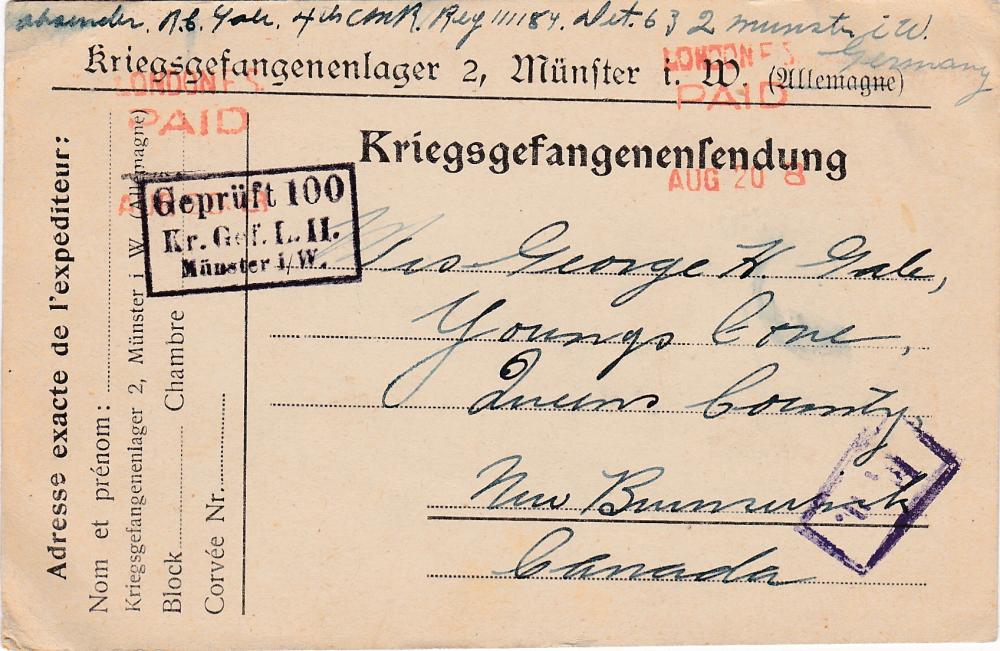 absender. R.B. Gale. 4th CMR. Reg 111184. Det. 632 munster i W.
Germany
Kriegsgefangenenlager 2, Münster i. W. (Allemagne)
LONDON F.S.
PAID
LONDON F.S.
PAID
Kriegsgefangenensendung
AUG 20 8
Geprüft 100
Kr. Gef. L. II.
Münster i/W.
George H Gale,
Youngs Cove,
Queens County,
New Brunswick
Canada
Adresse exacte de l'expediteur:
Nom et prénom:
Kriegsgefangenenlager 2, Münster i. W. (Allemagne)
Block Chambre
Corvée Nr.